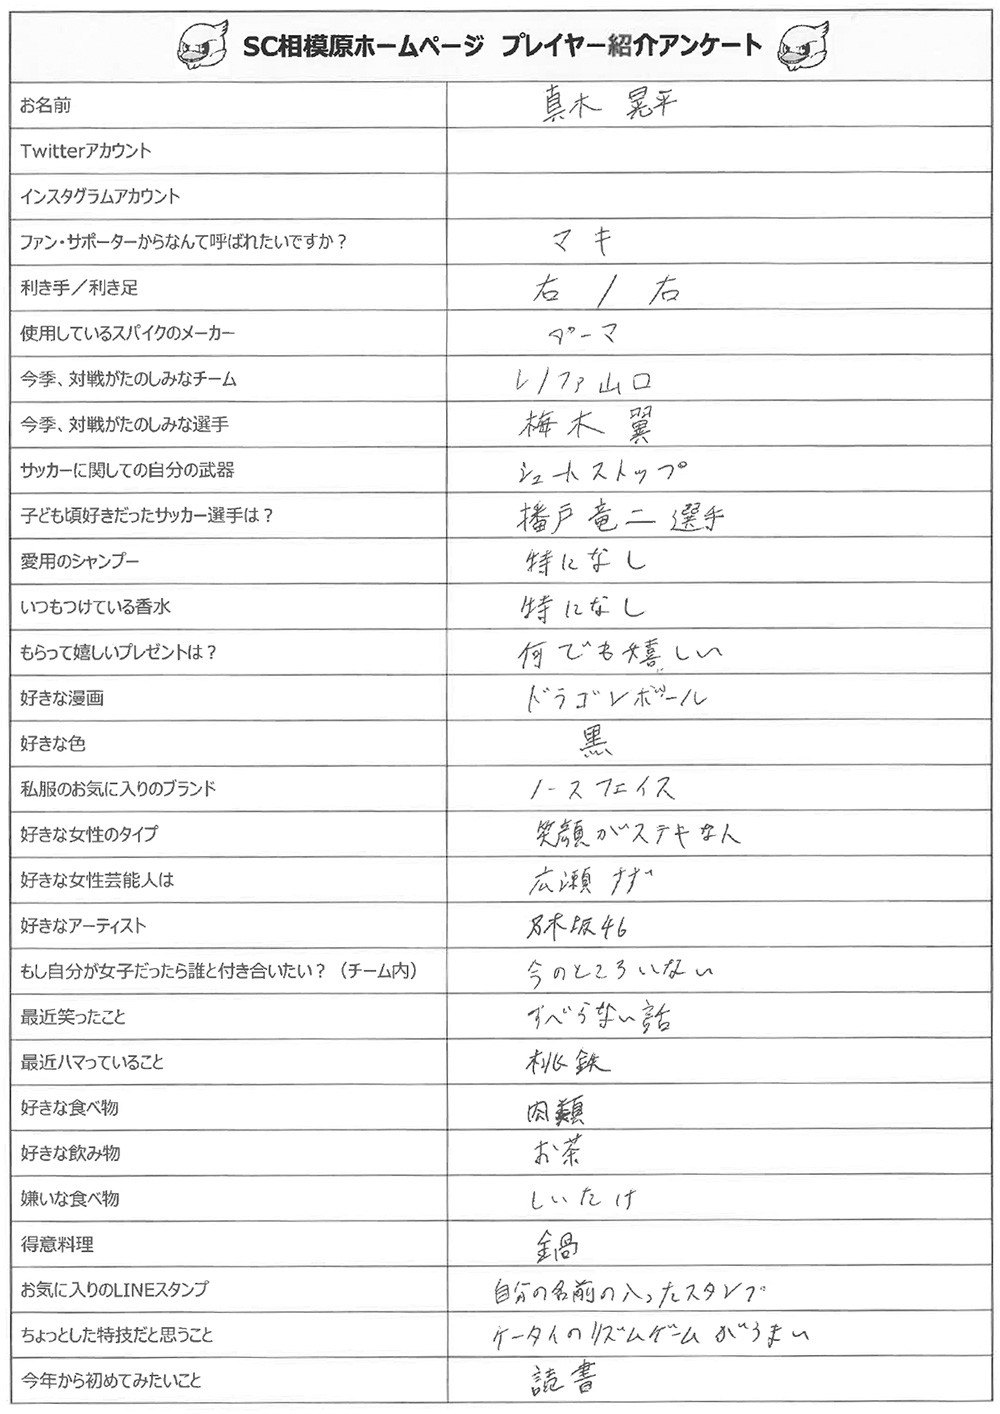 SC相模原ホームページ プレイヤー紹介アンケート
お名前 真木 晃平
Twitterアカウント
インスタグラムアカウント
ファン・サポーターからなんて呼ばれたいですか？ マキ
利き手／利き足 右 / 右
使用しているスパイクのメーカー プーマ
今季、対戦がたのしみなチーム レノファ山口
今季、対戦がたのしみな選手 梅木 翼
サッカーに関しての自分の武器 シュートストップ
子ども頃好きだったサッカー選手は？ 播戸竜二選手
愛用のシャンプー 特になし
いつもつけている香水 特になし
もらって嬉しいプレゼントは？ 何でも嬉しい
好きな漫画 ドラゴンボール
好きな色 黒
私服のお気に入りのブランド ノースフェイス
好きな女性のタイプ 笑顔がステキな人
好きな女性芸能人は 広瀬すず
好きなアーティスト 乃木坂46
もし自分が女子だったら誰と付き合いたい？（チーム内） 今のところいない
最近笑ったこと すべらない話
最近ハマっていること 桃鉄
好きな食べ物 肉類
好きな飲み物 お茶
嫌いな食べ物 しいたけ
得意料理 鍋
お気に入りのLINEスタンプ 自分の名前の入ったスタンプ
ちょっとした特技だと思うこと ケータイのリズムゲームがうまい
今年から初めてみたいこと 読書